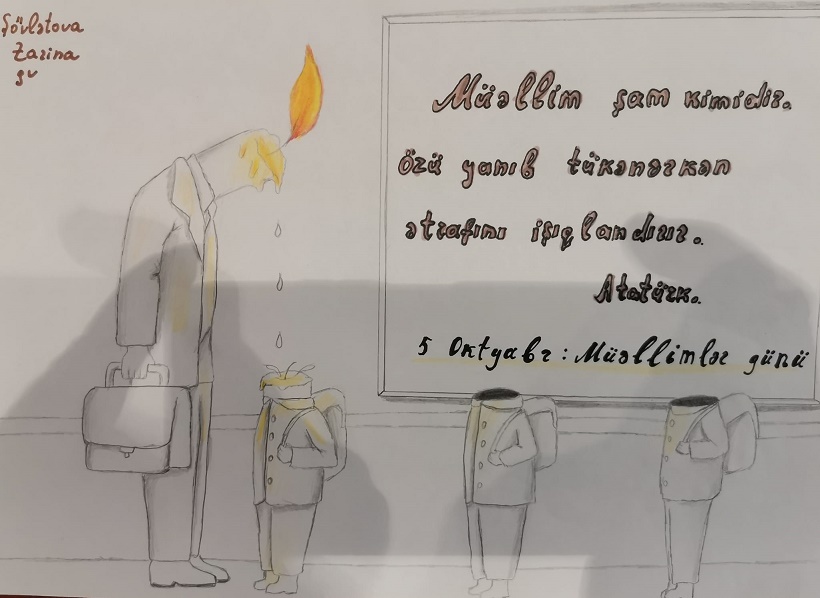 Şövlətova
Zarina
9v
Müəllim şam kimidir.
Özü yanıb tükənərkən
ətrafını işıqlandırır.
Atatürk.
5 Oktyabr: Müəllimlər günü